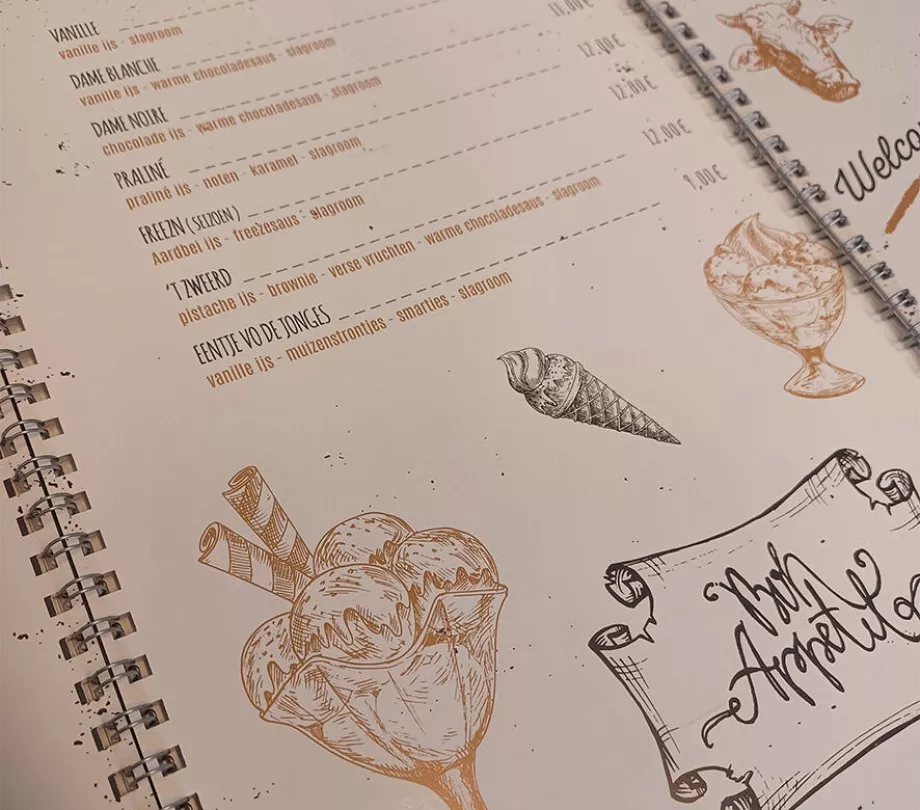 VANILLE
vanille ijs - slagroom
DAME BLANCHE
vanille ijs - warme chocoladesaus - slagroom
DAME NOIRE 11,00 €
chocolade ijs - warme chocoladesaus - slagroom
PRALINÉ 12,00 €
praliné ijs - noten - karamel - slagroom
FREEZN ( SEIZOEN ) 12,00 €
Aardbei ijs - freezesaus - slagroom
'T ZWEERD 12,00 €
pistache ijs - brownie - verse vruchten - warme chocoladesaus - slagroom
EENTJE VO DE JONGES 9,00 €
vanille ijs - muizenstrontjes - smarties - slagroom
Bon
Appetit
Welco